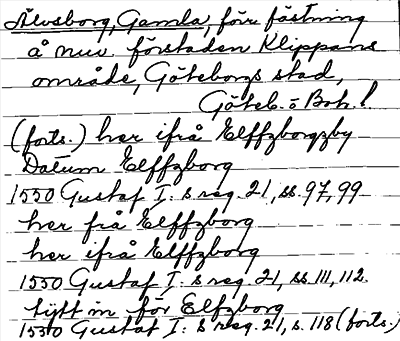 Älvsborg, Gamla, förr fästning
å nuv. förstaden Klippans
område, Göteborgs stad,
Göteb. o Boh. l.
(forts.) her ifrå Elffzborgzby
Datum Elffzborg
1550 Gustaf I:s reg. 21, ss. 97, 99
her frå Elffzborg
her ifrå Elffzborg
1550 Gustaf I:s reg. 21, ss. 111, 112.
in för Elfzborg
1550 Gustaf I:s reg. 21, s. 118 (forts.)